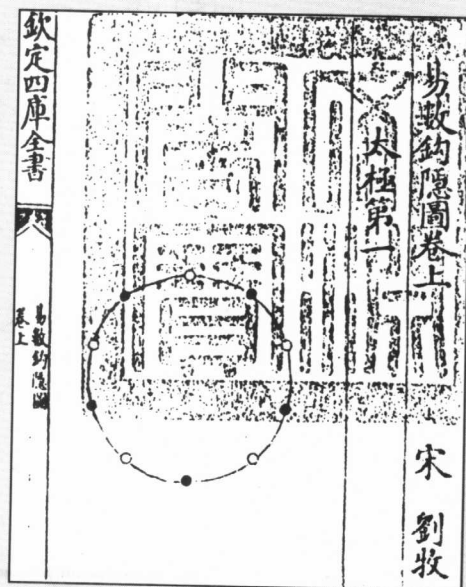 易數鈎隱圖卷上
宋 劉牧
太極第一
欽定四庫全書
易數鈎隱圖
卷上